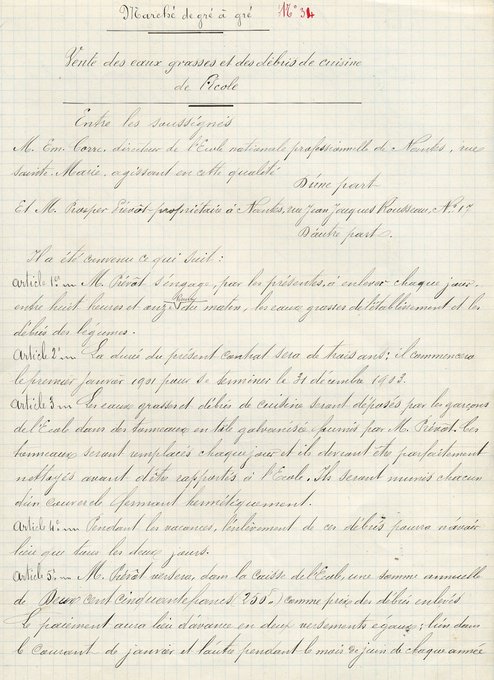 Marché de gré à gré N° 34
Vente des eaux grasses et des débris de cuisine
de l'Ecole
Entre les soussignés
M. Em. Corre, directeur de l'Ecole nationale professionnelle de Nantes, rue
Sainte-Marie, agissant en cette qualité
D'une part
Et M. Prosper Prévôt-propriétaire à Nantes, rue Jean Jacques Rousseau, N° 17
D'autre part.
Il a été convenu ce qui suit :
Article 1er M. Prévôt s'engage, par les présentes, à enlever chaque jour,
entre huit heures et onze du matin, les eaux grasses de l'établissement et les
débris des légumes.
Article 2e La durée du présent contrat sera de trois ans ; il commencera
le premier janvier 1901 pour se terminer le 31 décembre 1903.
Article 3 Les eaux grasses et débris de cuisine seront déposés par les garçons
de l'Ecole dans des tonneaux en tôle galvanisée fournis par M. Prévôt. Ces
tonneaux seront remplacés chaque jour et ils devront être parfaitement
nettoyés avant d'être rapportés à l'Ecole. Ils seront munis chacun
d'un couvercle fermant hermétiquement.
Article 4e Pendant les vacances, l'enlèvement de ces débris pourra n'avoir
lieu que tous les deux jours.
Article 5e M. Prévôt versera, dans la caisse de l'Ecole, une somme annuelle
de Deux cent cinquante francs (250f) comme prix des débris enlevés
Le paiement aura lieu d'avance en deux versements égaux ; l'un dans
le courant de janvier et l'autre pendant le mois de juin de chaque année